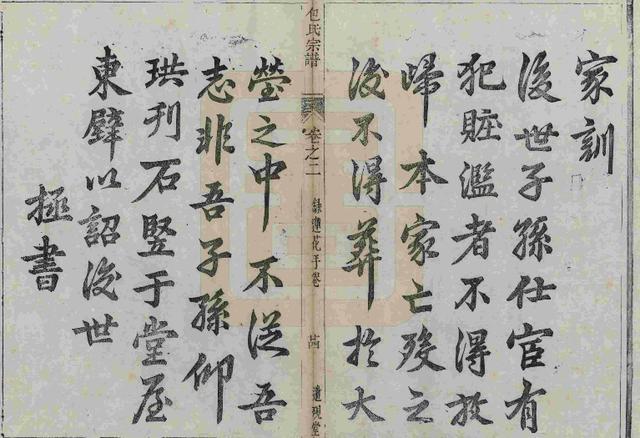 家訓
後世子孫仕宦有
犯賍濫者不得放
歸本家亡殁之
後不得葬於大
包氏宗譜 卷之二 蓮花手卷 遺硯堂
塋之中不從吾
志非吾子孫仰
珙刊石竪于堂屋
東壁以詔後世
拯書